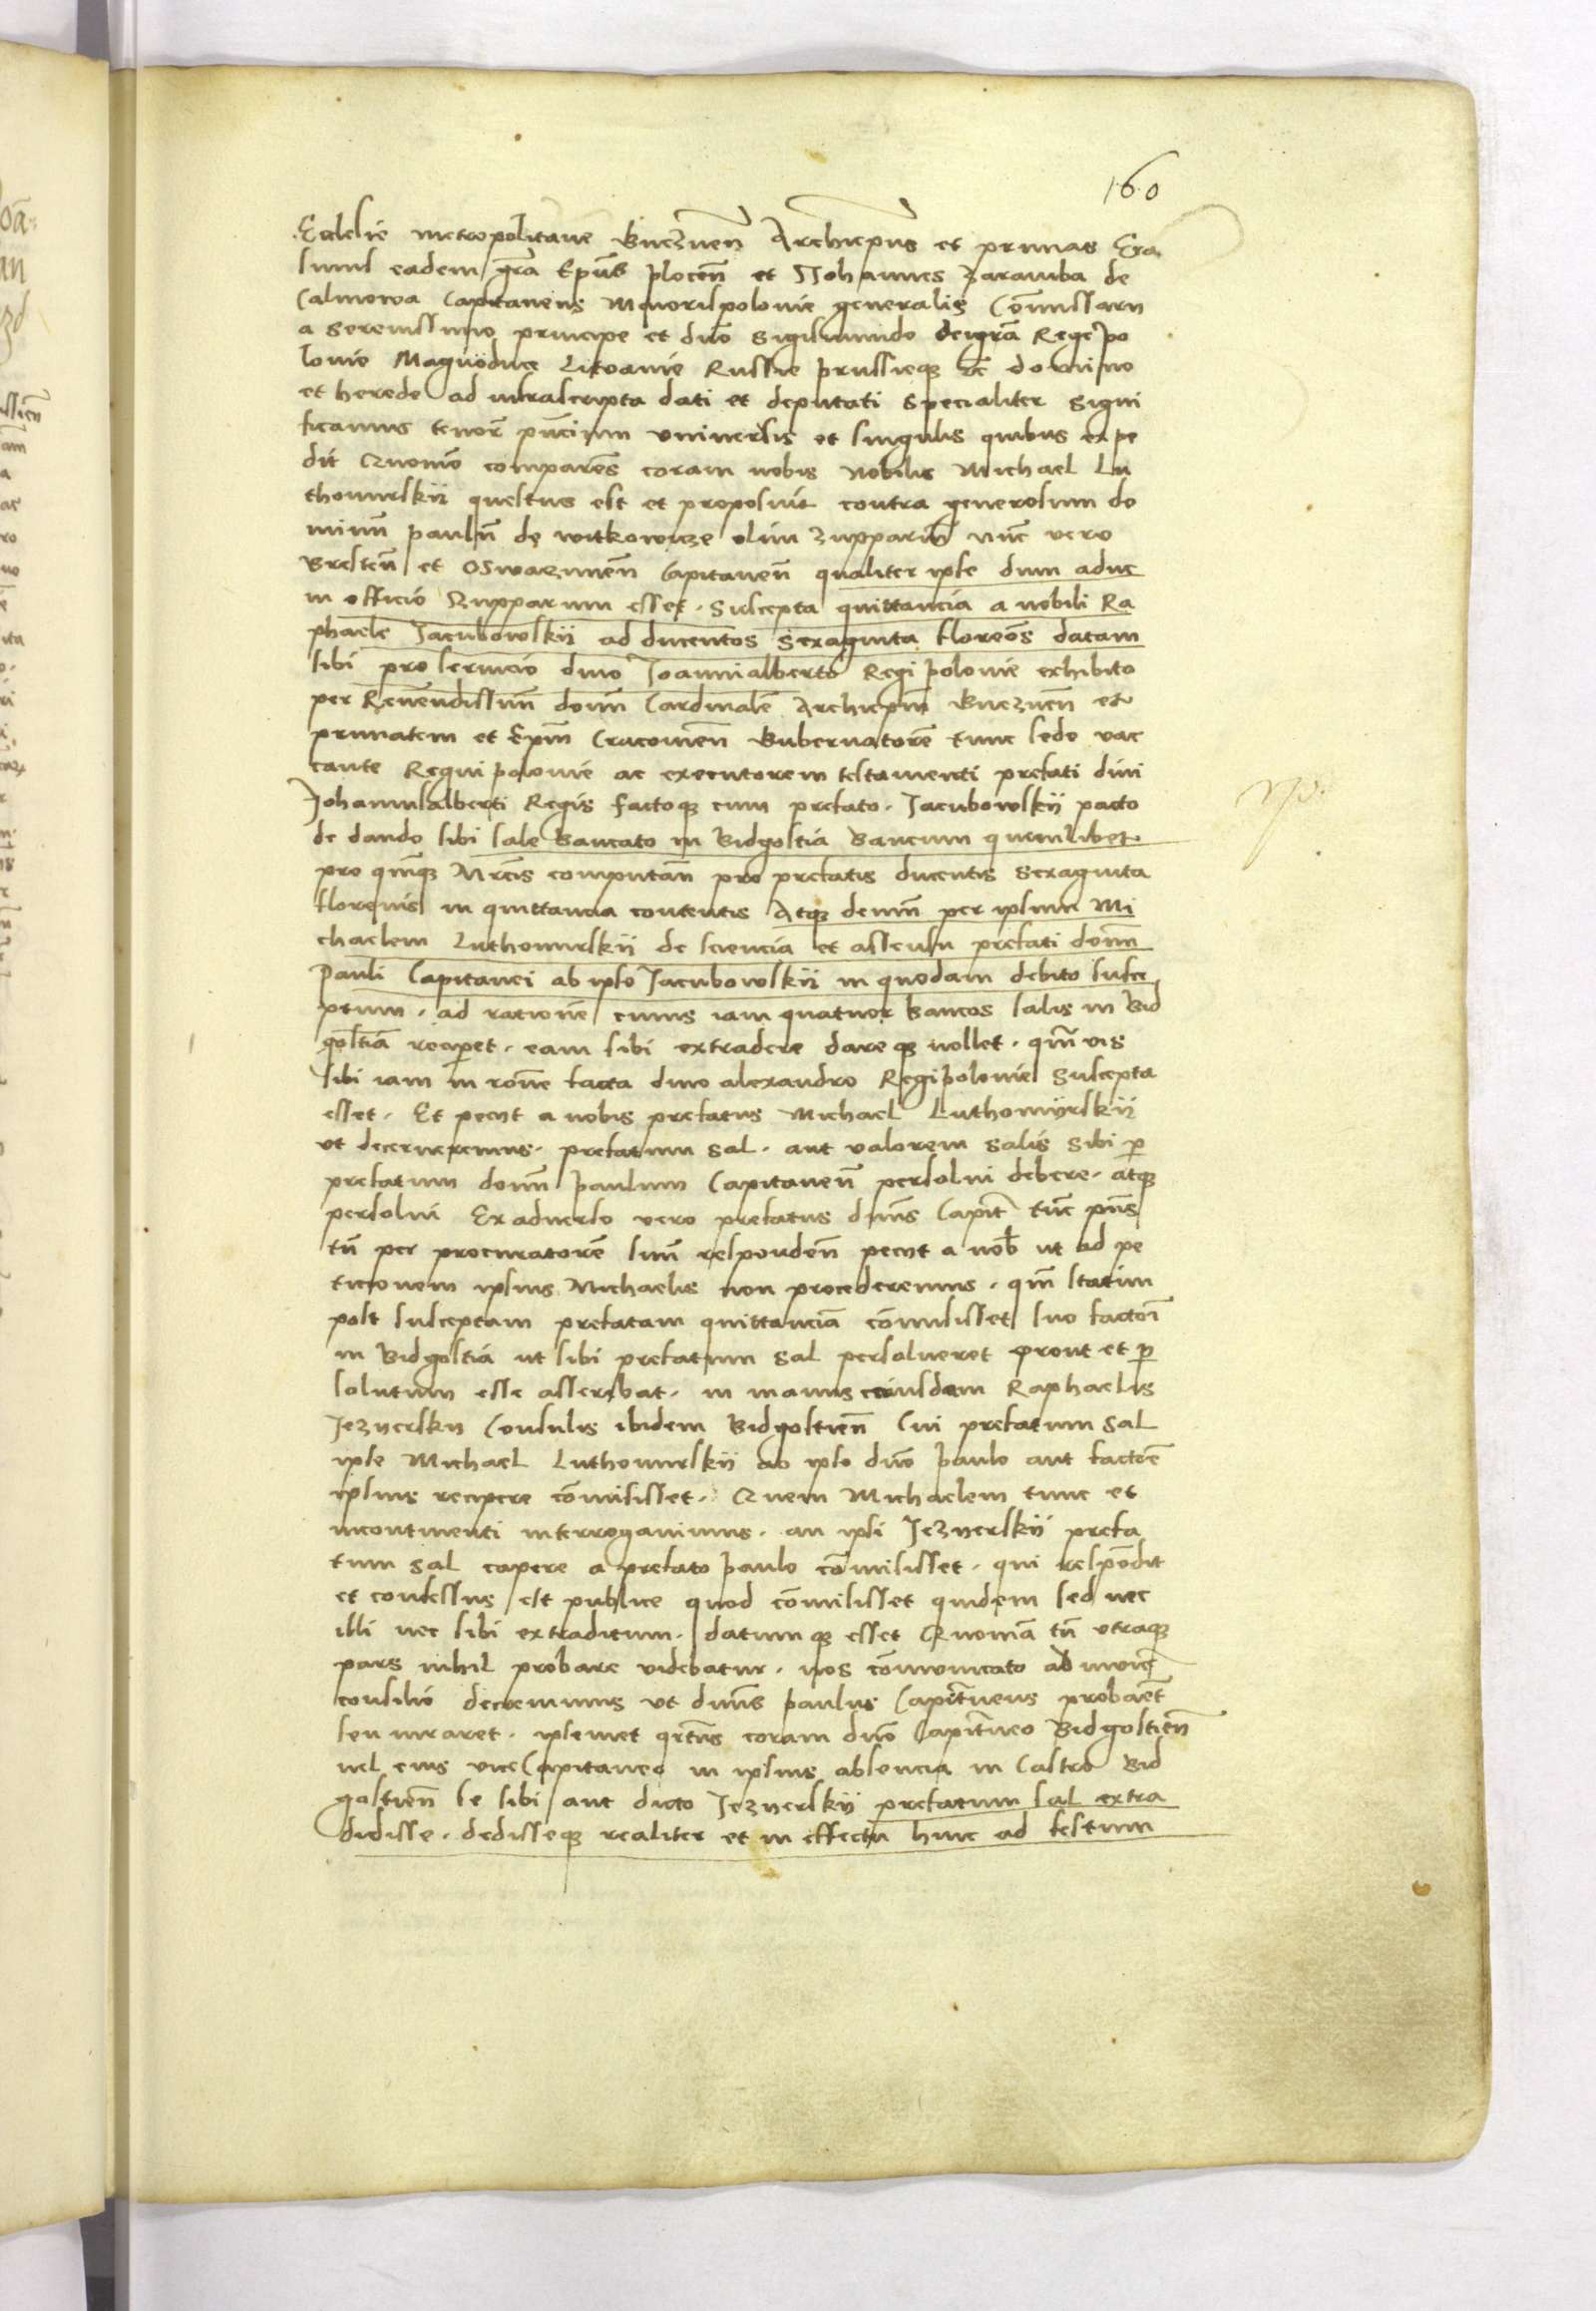 160
Ecclesie metropolitane Gneznen̄ Archiepūs et primas Era
smus eadem gr̄a Ep̄us plocen̄ et Johannes Zaramba de
Calinowa Capitaneus Maiorispolonie generalis Com̄issarii
a serenissimo principe et dn̄o Sigismundo dei gr̄a Rege po
lonie Magnoduce Litwanie Russie prussieq3 &c domino
et herede ad infrascripta dati et deputati specialiter Signi
ficamus tenore p̄ncium vniuersis et singulis quibus expe
dit Quomō comparens coram nobis nobilis Michael Lu
thomirskij questus est et proposuit contra generosum do
minū paulū de witkowicze olim zupparium nūc vero
Bresten̄ et Oswaczimen̄ Capitaneū qualiter ipse dum adhuc
in officio Zupparum esset. Suscepta quittancia a nobili Ra
phaele Jacubowskij ad ducentos sexaginta florenos datam
sibi pro seruicio diuo Joannialberto Regi polonie exhibito
per Reuerendissimū dom̄ Cardinalē Archiep̄m Gneznen̄ et
primatem et Ep̄m Cracouien̄ Gubernatorē tunc sede vac
cante Regni polonie ac executorem testamenti prefati diui
Johannisalberti Regis factoq3 cum prefato. Jacubowskij pacto
de dando sibi sale Bancato in Bidgostia Bancum quemlibet
pro quinq3 Mrcis computan̄ pro prefatis ducentis sexaginta
florenis in quittancia contentis Atq3 demū per ipsum Mi
chaelem Luthomirskij de sciencia et assensu prefati domī
Pauli Capitanei ab ipso Jacubowskij in quodam debito susce
ptum. ad rationē cuius iam quatuor bancos salis in Bid
gostia recepet. eam sibi extradere dareq3 nollet. quāuis
sibi iam in rōne facta diuo alexandro Regi polonie suscepta
esset. Et peciit a nobis prefatus Michael Luthomijrskij
vt decerneremus. prefatum sal. aut valorem salis sibi p̄
prefatum dom̄ paulum Capitaneū persolui debere. atq3
persolui Ex aduerso vero prefatus dn̄us Capit̄ tūc pn̄s
tn̄ per procuratorē suū responden̄ peciit a nob̄ ut ad pe
ticionem ipsius Michaelis non procederemus. qm̄ statim
post susceptam prefatam quittanciā com̄isisset suo factori
in Bidgostia ut sibi prefatum sal persolueret prout et p̄
solutum esse asserebat. in manus eiusdem Raphaelis
Jeznerskij Consulis ibidem Bidgostien̄ Cui prefatum sal
ipse Michael Luthomirskij ab ipso dn̄o paulo aut factorē
ipsius recipere com̄isisset. Quem Michaelem tunc et
incontinenti interrogauimus. an ipsi Jeznerskij prefa
tum sal capere a prefato paulo com̄isisset. qui respōdit
et confessus est publice quod com̄isisset quidem sed nec
illi nec sibi extraditum. datumq3 esset Quoniā tn̄ vtraq3
pars nihil probare videbatur. nos com̄unicato ab inuicē
consilio decreuimus vt dn̄us paulus Capitaneus probaret
seu iuraret. ipsemet coram dn̄o Capitaneo Bidgostien̄
vel eius viceCapitaneo in ipsius absencia in Castro Bid
gostien̄ se sibi aut dicto Jeznerskij prefatum sal extra
didisse. dedisseq3 realiter et in effectu hinc ad festum